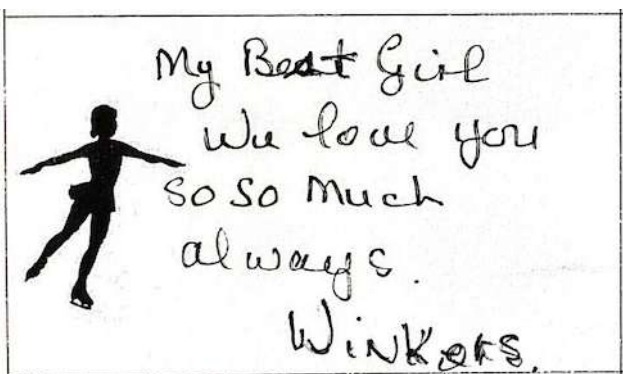 My Best Girl
We love you
so so Much
always.
Winkers.